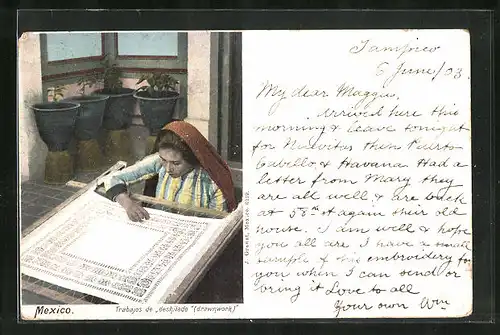 Tampico
6 June/03
My dear Maggie,
Arrived here this
morning & leave tonight
for Nuevitas then Puerto
Cabillo & Havana Had a
letter from Mary they
are all well & are back
at 58th st again their old
house. I am well & hope
you all are I have a small
sample of this embroidery for
you when I can send or
bring it Love to all
Your own Wm
J. Granat, Mexico. 6139.
Mexico.
Trabajos de „deshilado" (drawnwork)